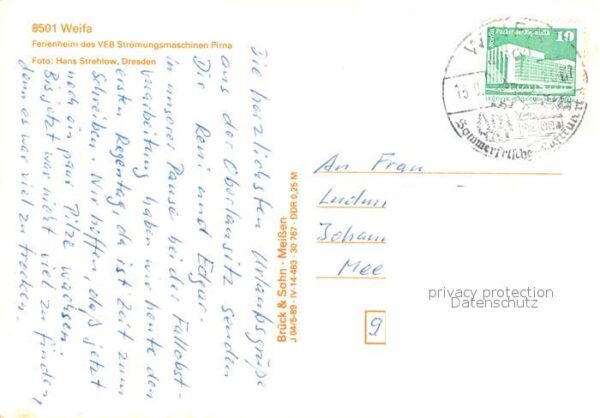 8501 Weifa
Ferienheim des VEB Strömungsmaschinen Pirna
Foto: Hans Strehlow, Dresden
Die herzlichsten Urlaubsgrüße
aus der Oberlausitz senden
Die Reni und Edgar.
in unserer Pause bei der Fallobst-
verarbeitung haben wir heute den
ersten Regentag, da ist Zeit zum
Schreiben. Wir hoffen, daß jetzt
noch ein paar Pilze wachsen.
Bis jetzt war nicht viel zu finden,
denn es war viel zu trocken.
Brück & Sohn · Meißen
J 04/5-89 · IV-14-483 · 30 767 · DDR 0,25 M
10
Berlin Palast der Republik
Sommerfrische
An Frau
Ludm
Joham
Mee
9
privacy protection
Datenschutz